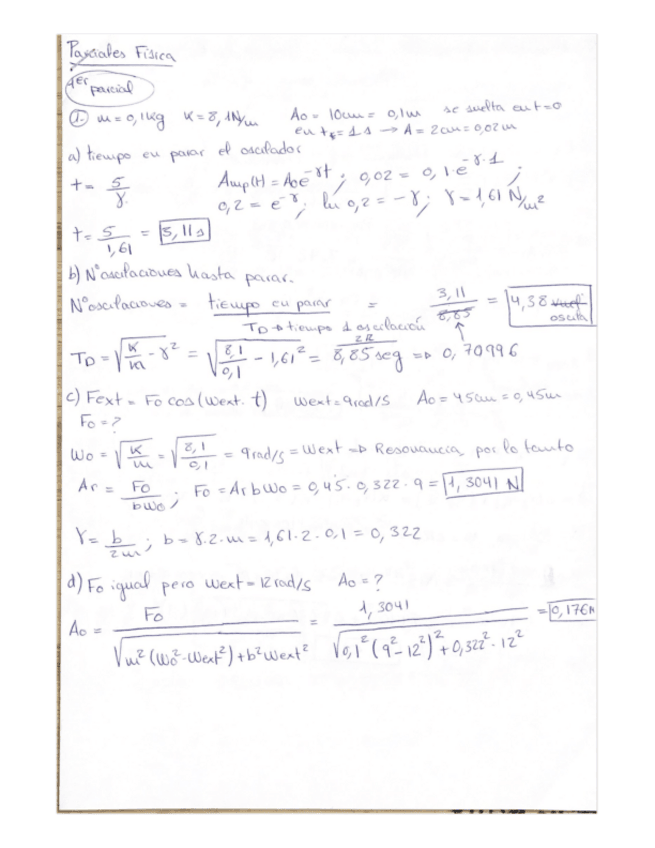 Parciales Física
1er parcial
1. m = 0,1kg K = 8,1N/m A0 = 10cm = 0,1m se suelta en t=0
en t* = 1s → A = 2cm = 0,02m
a) tiempo en parar el oscilador
t = 5/γ Amp(t) = A0e^-γt ; 0,02 = 0,1·e^-γ·1 ;
0,2 = e^-γ ; ln 0,2 = -γ ; γ = 1,61 N/m²
t = 5/1,61 = 3,11s
b) Nº oscilaciones hasta parar.
Nº oscilaciones = tiempo en parar / TD → tiempo 1 oscilación = 3,11 / 8,85 = 4,38 oscila
TD = √(K/m - γ²) = √(8,1/0,1 - 1,61²) = 2π / 8,85 seg ⇒ 0,70996
c) Fext = F0 cos(Wext. t) Wext = 9rad/s A0 = 45cm = 0,45m
F0 = ?
W0 = √(K/m) = √(8,1/0,1) = 9rad/s = Wext ⇒ Resonancia, por lo tanto
Ar = F0/bW0 ; F0 = Ar b W0 = 0,45 · 0,322 · 9 = 1,3041 N
γ = b/2m ; b = γ·2·m = 1,61·2·0,1 = 0,322
d) F0 igual pero Wext = 12rad/s A0 = ?
A0 = F0 / √(m²(W0²-Wext²)+b²Wext²) = 1,3041 / √(0,1²(9²-12²)²+0,322²·12²) = 0,176